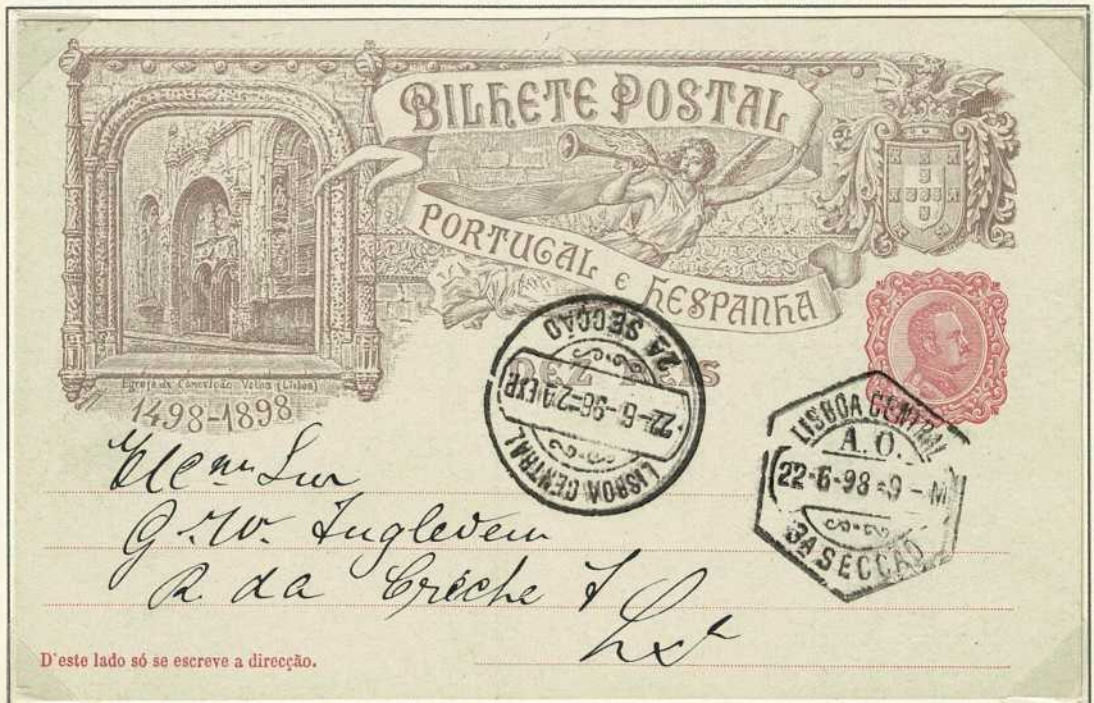 BILHETE POSTAL
PORTUGAL E HESPANHA
DEZ REIS
Egreja da Conceição Velha (Lisboa)
1498-1898
LISBOA CENTRAL
22-6-98-2
2A SECÇÃO
LISBOA CENTRAL
A. O.
22-6-98-9-M
3A SECÇÃO
G. W.
R. da Créche 7
Lxª
D'este lado só se escreve a direcção.